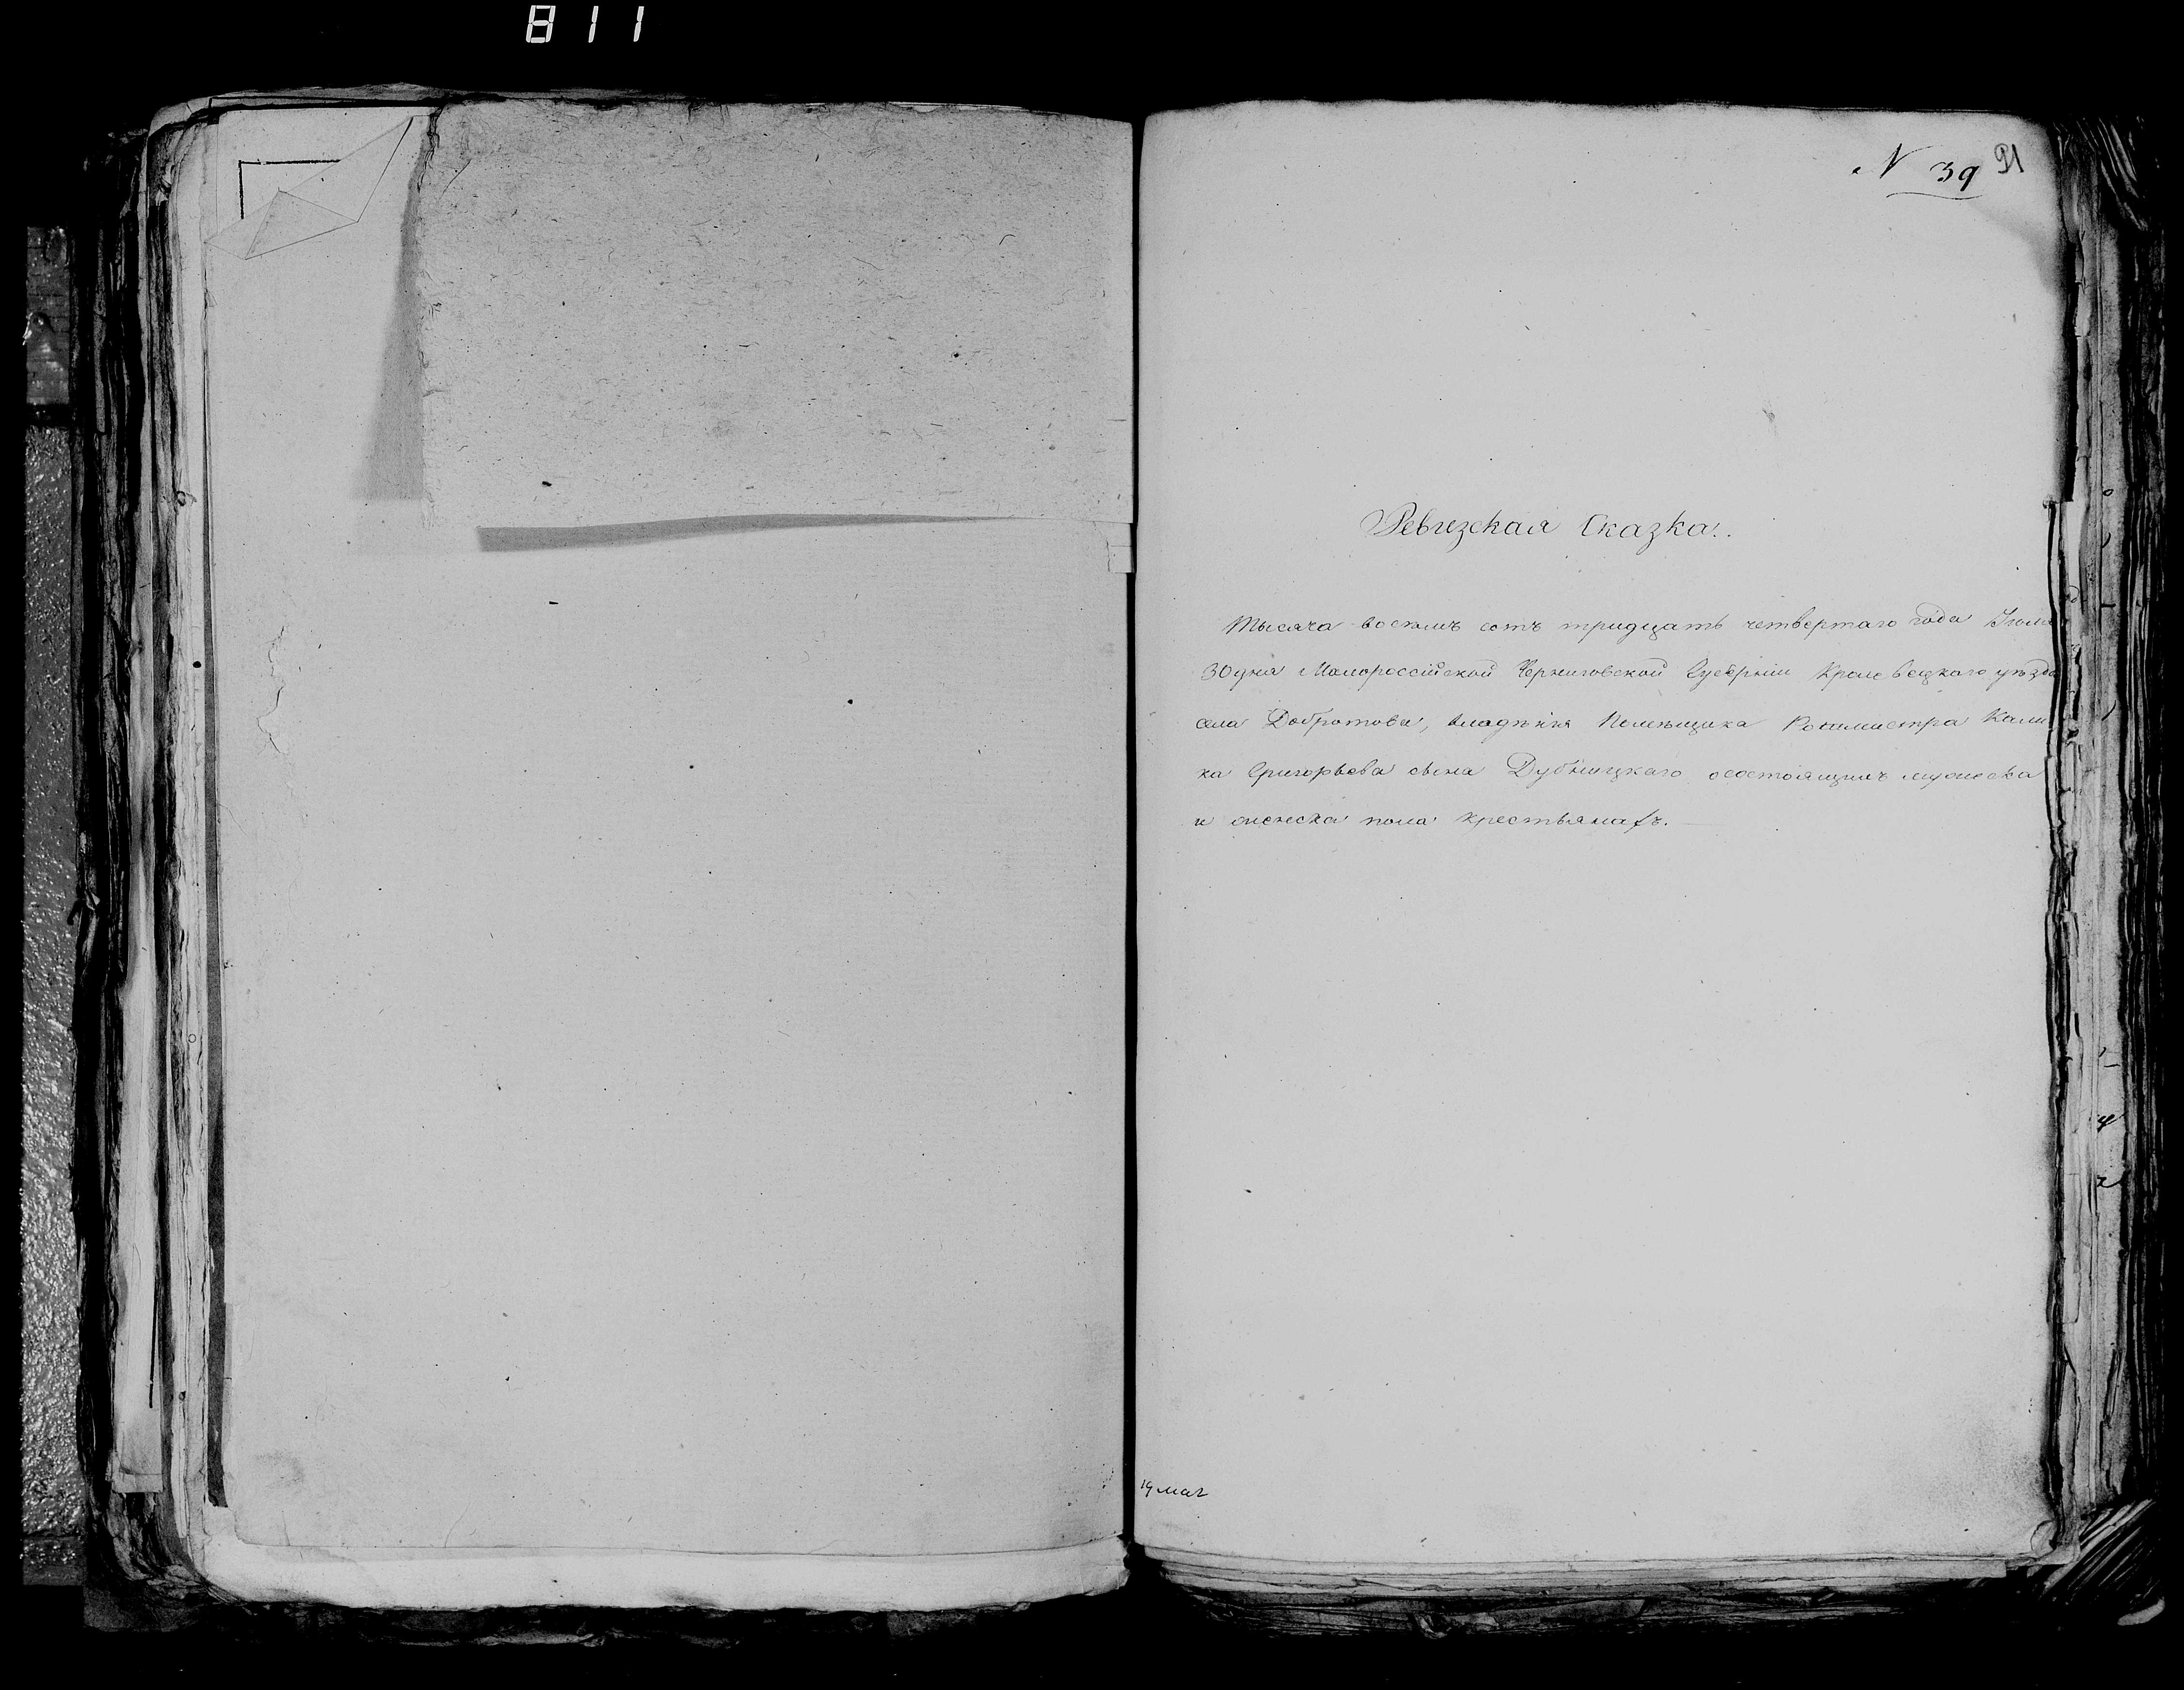 811
N 39 91
Ревизская Сказка.
Тысяча восемь сотъ тридцать четвертаго года
30 дня Малороссійской Черниговской Губерніи Кролевецкого уѣзда
села Добротова, владѣнія Помѣщика Ротмистра
ка Григорьева сына Дубницкаго, осостоящихъ мужеска
и женска пола крестьянахъ.